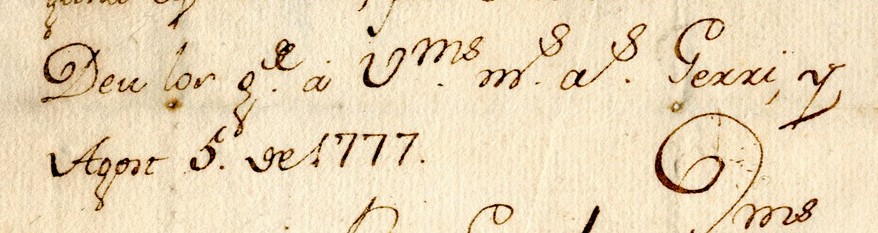 Deu lor g.e à V.ms m.s a.s Gerri, y
Agost 5. de 1777.
ms